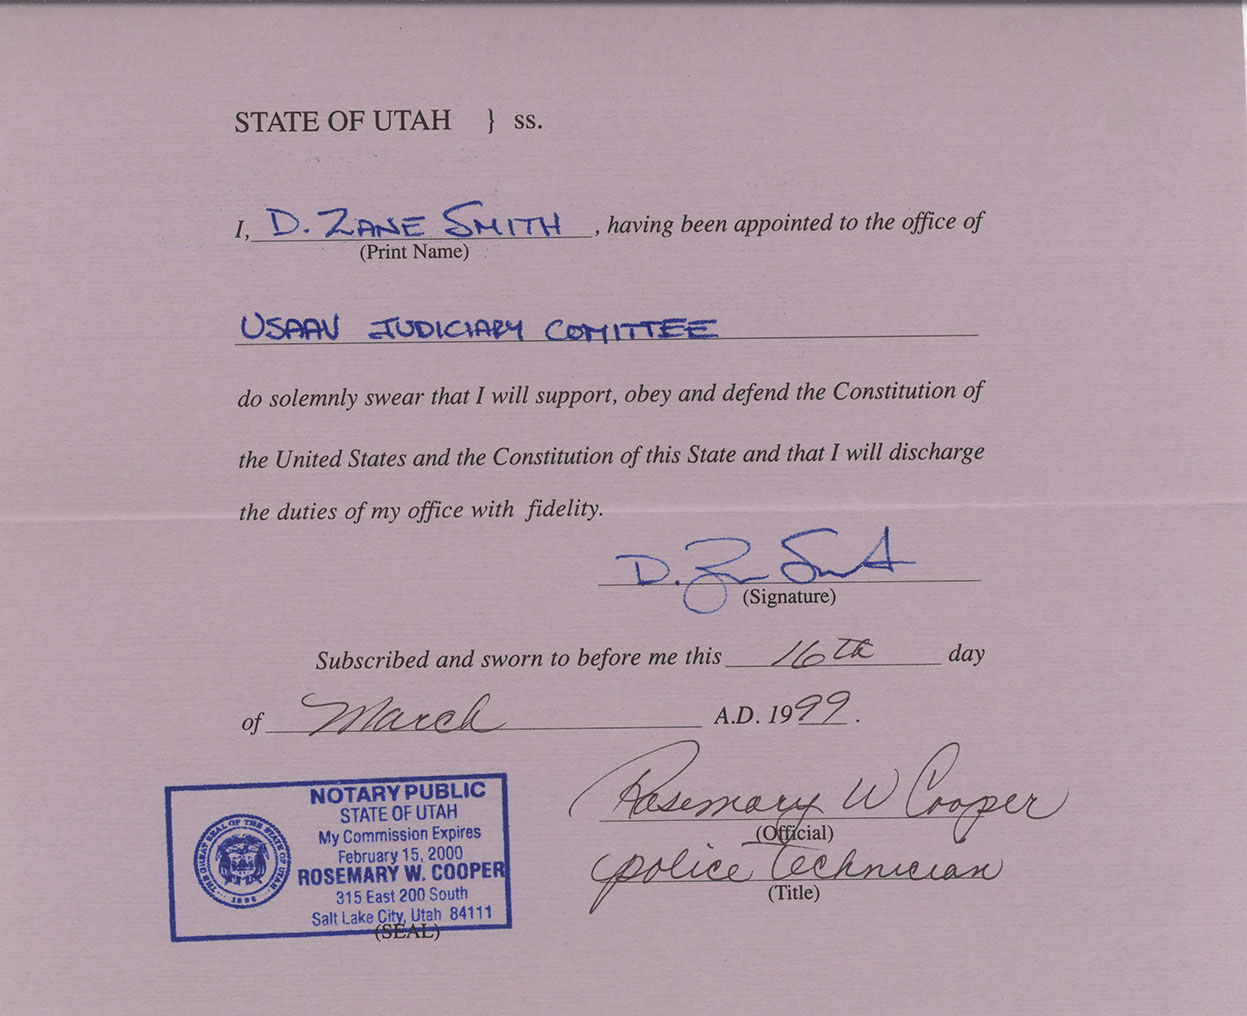 STATE OF UTAH } ss.
I, D. ZANE SMITH, having been appointed to the office of
(Print Name)
USAAV JUDICIARY COMITTEE
do solemnly swear that I will support, obey and defend the Constitution of
the United States and the Constitution of this State and that I will discharge
the duties of my office with fidelity.
D. Zane Smith
(Signature)
Subscribed and sworn to before me this 16th day
of March A.D. 1999.
Rosemary W Cooper
(Official)
police technician
(Title)
NOTARY PUBLIC
STATE OF UTAH
My Commission Expires
February 15, 2000
ROSEMARY W. COOPER
315 East 200 South
Salt Lake City, Utah 84111
(SEAL)
THE GREAT SEAL OF THE STATE OF UTAH
1896